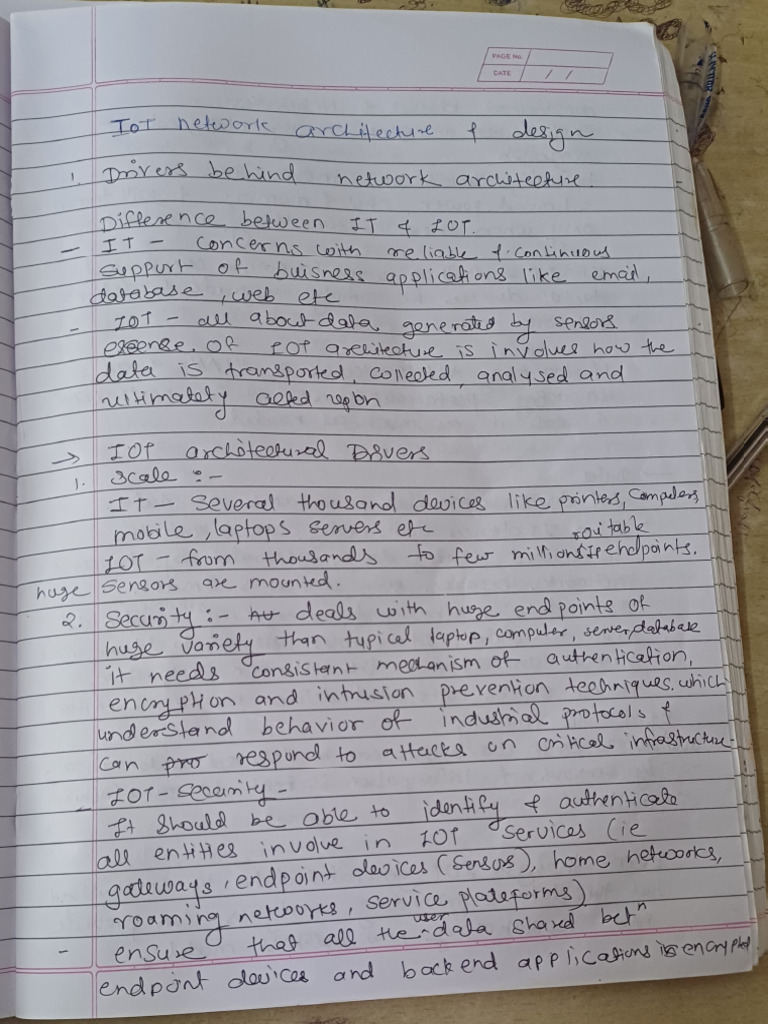 PAGE NO.
DATE / /
IoT network architecture & design
1. Drivers behind network architecture.
Difference between IT & IOT.
- IT - concerns with reliable & continuous
support of buisness applications like email,
database, web etc
- IOT - all about data generated by sensors
esense of IOT architecture is involves how the
data is transported, collected, analysed and
ultimately acted upon
→ IOT architectural Drivers
1. Scale :-
IT - Several thousand devices like printers, Computers
mobile, laptops servers etc
routable
IOT - from thousands to few millions endpoints.
huge sensors are mounted.
2. Security :- deals with huge endpoints of
huge variety than typical laptop, computer, server, database
it needs consistant mechanism of authentication,
encryption and intrusion prevention techniques. which
understand behavior of industrial protocols &
can pro respond to attacks on critical infrastructure.
- IOT - Security -
It should be able to identify & authenticate
all entities involve in IOT services (ie
gateways, endpoint devices (sensors), home networks,
roaming networks, service plateforms)
user
- ensure that all the data shared betn
endpoint devices and backend applications is encrypted